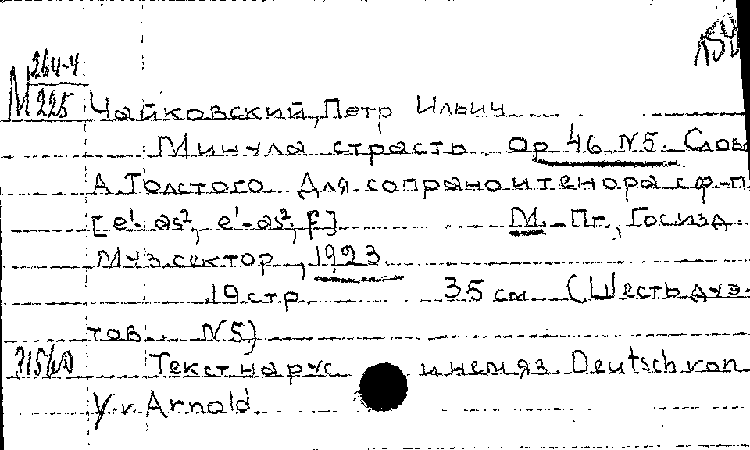 М 264-4
225
Чайковский, Петр Ильич
Минула страсть. Op. 46 N5. Слова
А. Толстого. Для сопрано и тенора с ф-п.
[e¹-as², e¹-as², f] М.-Пг., Госизд.
Муз. сектор, 1923.
19 стр. 35 см. (Шесть дуэ-
тов. N5)
Текст на рус. и нем. яз. Deutsch von
Y. v. Arnold.